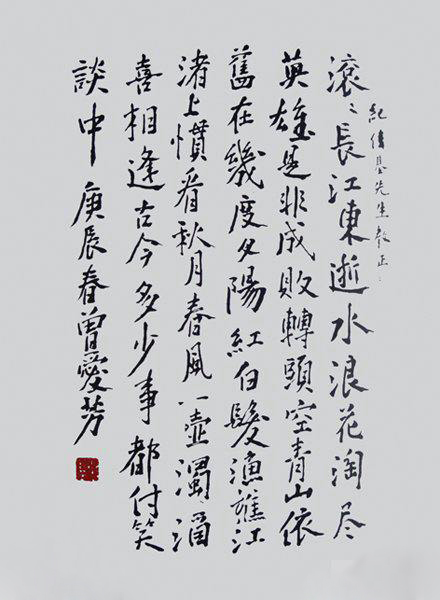 紀基先生教正
滾〻長江東逝水浪花淘尽
英雄是非成敗轉頭空青山依
舊在幾度夕陽紅白髮漁樵江
渚上慣看秋月春風一壺濁酒
喜相逢古今多少事都付笑
談中 庚辰春曾愛芳